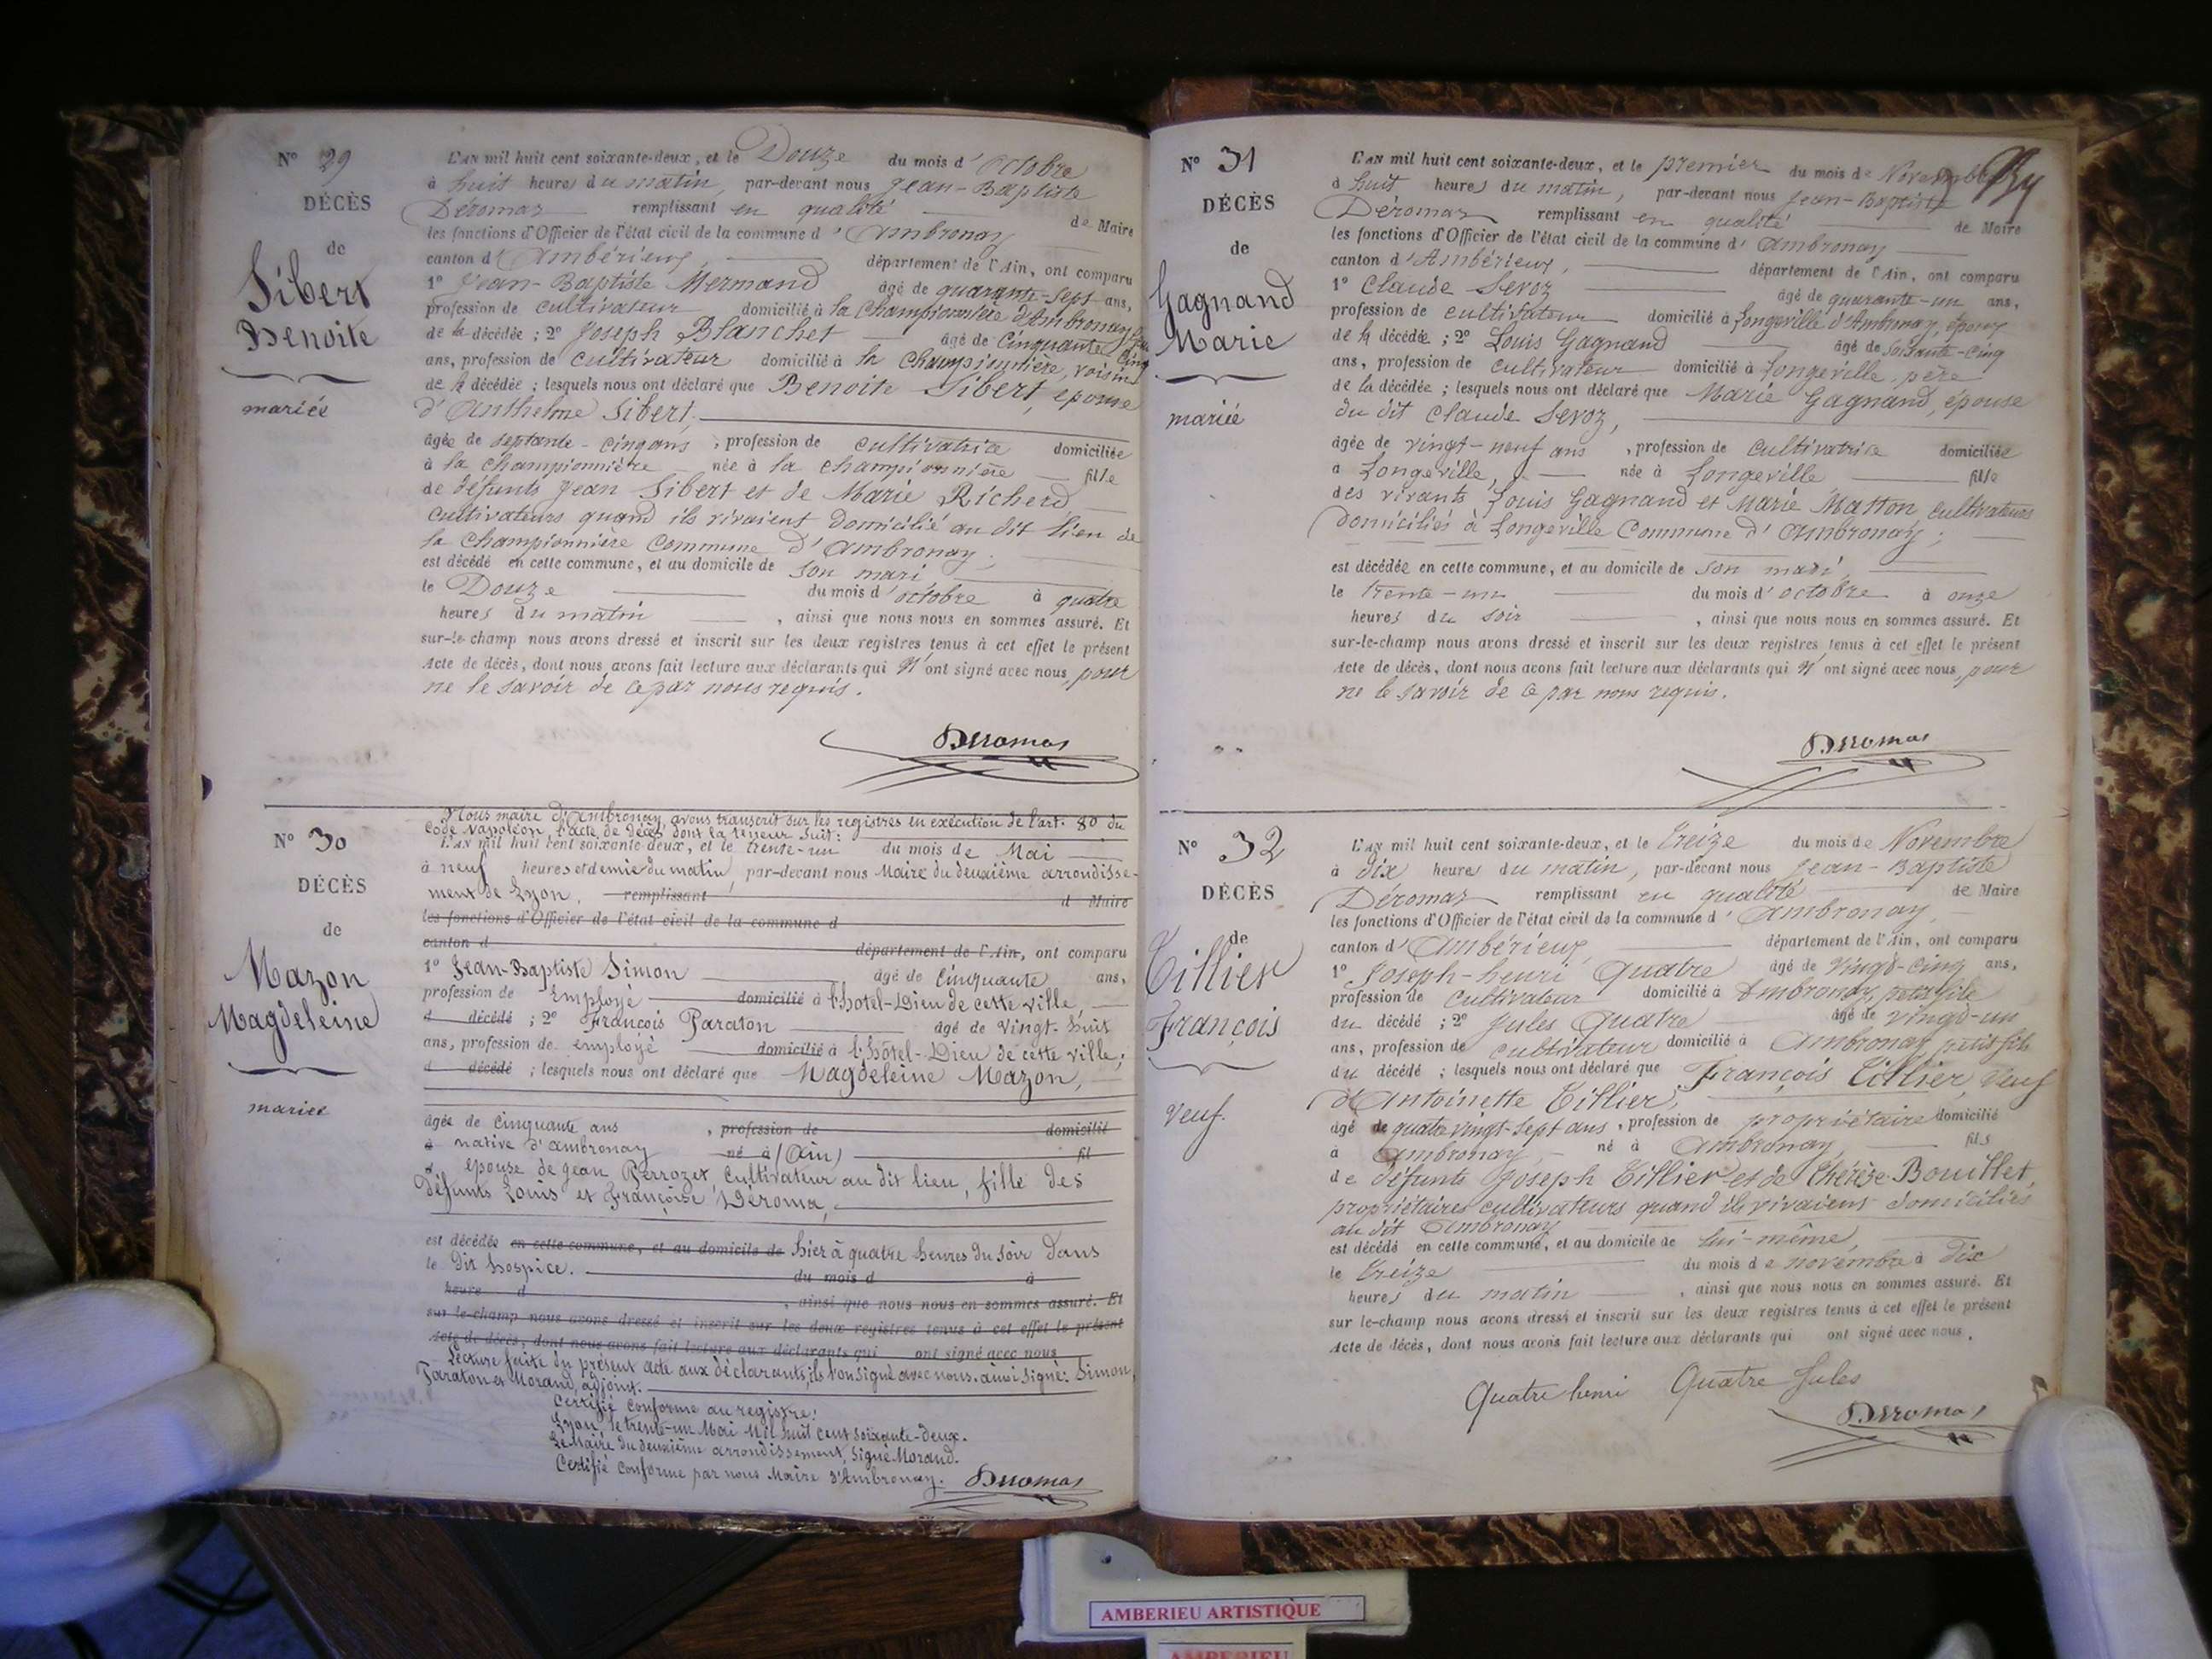 N° 29
DÉCÈS
de
Sibert
Benoite
mariée
L'AN mil huit cent soixante-deux, et le Douze du mois d'octobre
à huit heures du matin, par-devant nous Jean-Baptiste
Déromas remplissant en qualité de Maire
les fonctions d'Officier de l'état civil de la commune d'Ambronay
canton d'Ambérieux, département de l'Ain, ont comparu
1° Jean-Baptiste Mermand âgé de quarante-sept ans,
profession de cultivateur domicilié à la Championnière d'Ambronay
de la décédée ; 2° Joseph Blanchet âgé de Cinquante cinq
ans, profession de cultivateur domicilié à la Championnière, voisin
de la décédée ; lesquels nous ont déclaré que Benoite Sibert, épouse
d'Anthelme Sibert,
âgée de septante-cinq ans, profession de cultivatrice domiciliée
à la championnière née à la championnière fille
de défunts Jean Sibert et de Marie Richerd,
cultivateurs quand ils vivaient domicilié au dit lieu de
la championniere Commune d'Ambronay ;
est décédé en cette commune, et au domicile de son mari,
le Douze du mois d'octobre à quatre
heures du matin, ainsi que nous nous en sommes assuré. Et
sur-le-champ nous avons dressé et inscrit sur les deux registres tenus à cet effet le présent
Acte de décès, dont nous avons fait lecture aux déclarants qui N'ont signé avec nous, pour
ne le savoir de ce par nous requis.
Deromas
N° 30
DÉCÈS
de
Mazon
Magdeleine
mariee
Nous maire d'Ambronay, avons transcrit sur les registres en exécution de l'art. 80 du
Code Napoléon, l'acte de décès dont la teneur suit :
L'AN mil huit cent soixante-deux, et le trente-un du mois de Mai
à neuf heures et demie du matin, par-devant nous Maire du deuxième arrondisse-
ment de Lyon, remplissant d Maire
les fonctions d'Officier de l'état civil de la commune d
canton d département de l'Ain, ont comparu
1° Jean-Baptiste Simon âgé de Cinquante ans,
profession de Employé domicilié à l'hotel-Dieu de cette ville,
d décédé ; 2° François Paraton âgé de vingt-huit
ans, profession de employé domicilié à l'hôtel-Dieu de cette ville ;
d décédé ; lesquels nous ont déclaré que Magdeleine Mazon,
âgée de cinquante ans, profession de domicilié
à native d'ambronay né à (Ain) fil
d épouse de jean Perrozet, cultivateur au dit lieu, fille des
défunts Louis et Françoise Déroma,
est décédée en cette commune, et au domicile de hier à quatre heures du soir dans
le dit hospice. du mois d à
heure d , ainsi que nous nous en sommes assuré. Et
sur-le-champ nous avons dressé et inscrit sur les deux registres tenus à cet effet le présent
Acte de décès, dont nous avons fait lecture aux déclarants qui ont signé avec nous
Lecture faite du présent acte aux déclarants, ils l'ont signé avec nous. ainsi signé : Simon,
Paraton et Morand, adjoint.
Certifié conforme au registre :
Lyon, le trente-un Mai Mil huit cent soixante-deux.
Le Maire du deuxième arrondissement, signé Morand.
Certifié conforme par nous Maire d'Ambronay. Deromas
N° 31
DÉCÈS
de
Gagnand
Marie
mariée
L'AN mil huit cent soixante-deux, et le premier du mois de Novembre
à huit heures du matin, par-devant nous Jean-Baptiste
Déromas remplissant en qualité de Maire
les fonctions d'Officier de l'état civil de la commune d'Ambronay
canton d'Ambérieux, département de l'Ain, ont comparu
1° Claude Sevoz âgé de quarante-un ans,
profession de cultivateur domicilié à Longeville d'Ambronay, époux
de la décédée ; 2° Louis Gagnand âgé de soixante-cinq
ans, profession de cultivateur domicilié à Longeville, père
de la décédée ; lesquels nous ont déclaré que Marie Gagnand, épouse
du dit Claude Sevoz,
âgée de vingt-neuf ans, profession de cultivatrice domiciliée
a Longeville, née à Longeville fille
des vivants Louis Gagnand et Marie Matton cultivateurs
domiciliés à Longeville Commune d'Ambronay ;
est décédée en cette commune, et au domicile de son mari,
le trente-un du mois d'octobre à onze
heures du soir, ainsi que nous nous en sommes assuré. Et
sur-le-champ nous avons dressé et inscrit sur les deux registres tenus à cet effet le présent
Acte de décès, dont nous avons fait lecture aux déclarants qui N'ont signé avec nous, pour
ne le savoir de ce par nous requis.
Deromas
N° 32
DÉCÈS
de
Tillier
François
Veuf.
L'AN mil huit cent soixante-deux, et le treize du mois de Novembre
à dix heures du matin, par-devant nous Jean-Baptiste
Déromas remplissant en qualité de Maire
les fonctions d'Officier de l'état civil de la commune d'Ambronay,
canton d'Ambérieux, département de l'Ain, ont comparu
1° Joseph-henri Quatre âgé de vingt-cinq ans,
profession de cultivateur domicilié à Ambronay, petit fils
du décédé ; 2° Jules Quatre âgé de vingt-un
ans, profession de cultivateur domicilié à Ambronay petit fils
du décédé ; lesquels nous ont déclaré que François Tillier, Veuf
d'Antoinette Tillier,
âgé de quatre vingt-sept ans, profession de propriétaire domicilié
à Ambronay, né à Ambronay, fils
de défunts Joseph Tillier et de Thérèse Bouillet,
propriétaires cultivateurs quand ils vivaient domiciliés
au dit Ambronay
est décédé en cette commune, et au domicile de lui-même
le treize du mois de novembre à dix
heures du matin, ainsi que nous nous en sommes assuré. Et
sur le-champ nous avons dressé et inscrit sur les deux registres tenus à cet effet le présent
Acte de décès, dont nous avons fait lecture aux déclarants qui ont signé avec nous.
Quatre henri Quatre Jules
Deromas
AMBERIEU ARTISTIQUE
AMBERIEU